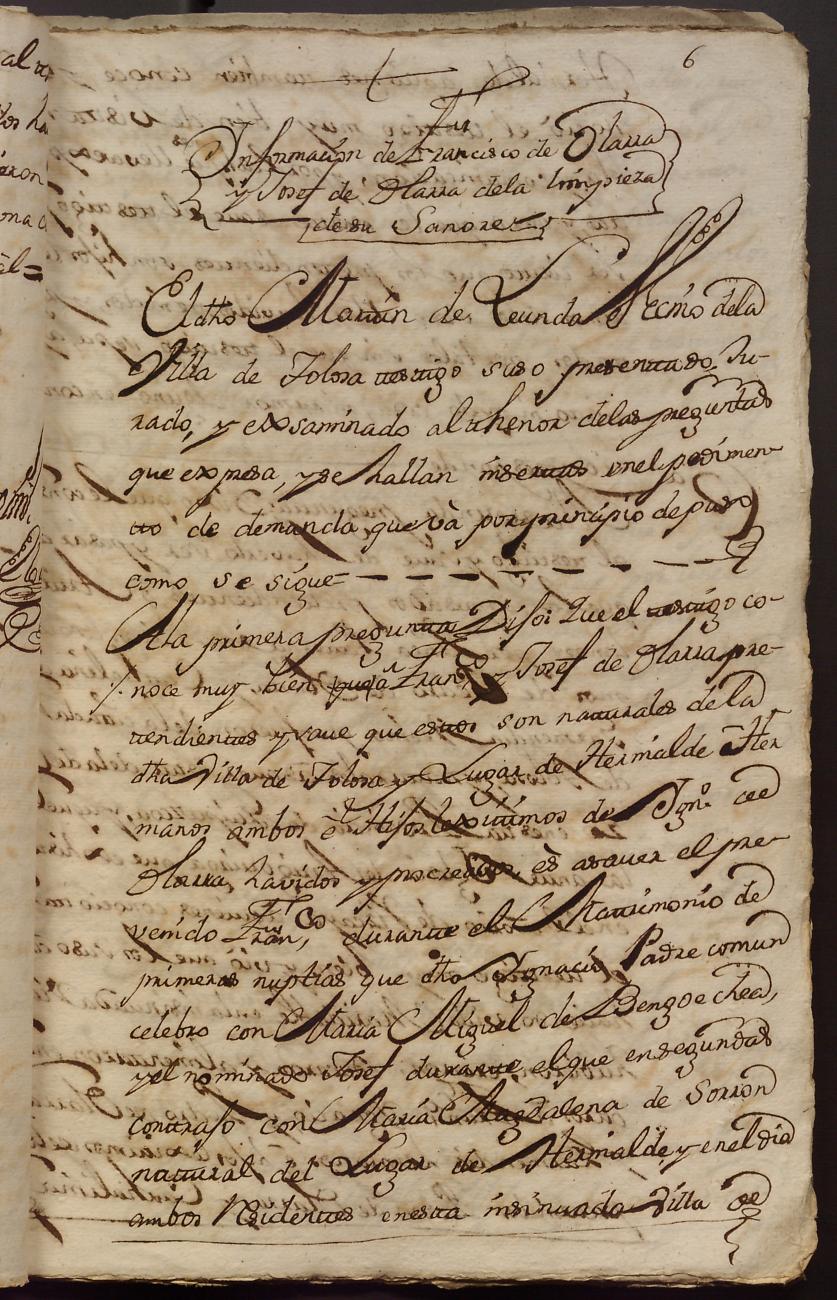 6
Informazion de Francisco de Olarra
y Josef de Olarra dela limpieza
de su Sangre
El dho Martin de Zeunda Sscrno dela
Villa de Tolosa testigo suso presentado Ju-
rado, y exsaminado al thenor delas preguntas
que expresa, y se hallan insertas en el pedimen-
to de demanda que và por prinzipio de puro
como se sigue
Ala primera pregunta Dijo: Que el testigo co-
noce muy bien à Franco y Josef de Olarra pre-
tendientes y save que estos son naturales de la
dha Villa de Tolosa y Lugar de Hernialde Her
manos ambos è Hijos lexitimos de Igno. de
Olarra, havidos y procreados, es asaver el pre-
venido Franco, durante el Matrimonio de
primeras nuptias que dho Ignacio Padre comun
celebro con Maria Miguel de Bengoechea,
y el nominado Josef durante el que en segundas
contrajo con Maria Magdalena de Sorron
natural del Lugar de Hernialde y en el dia
ambos Residentes en esta insinuada Villa de